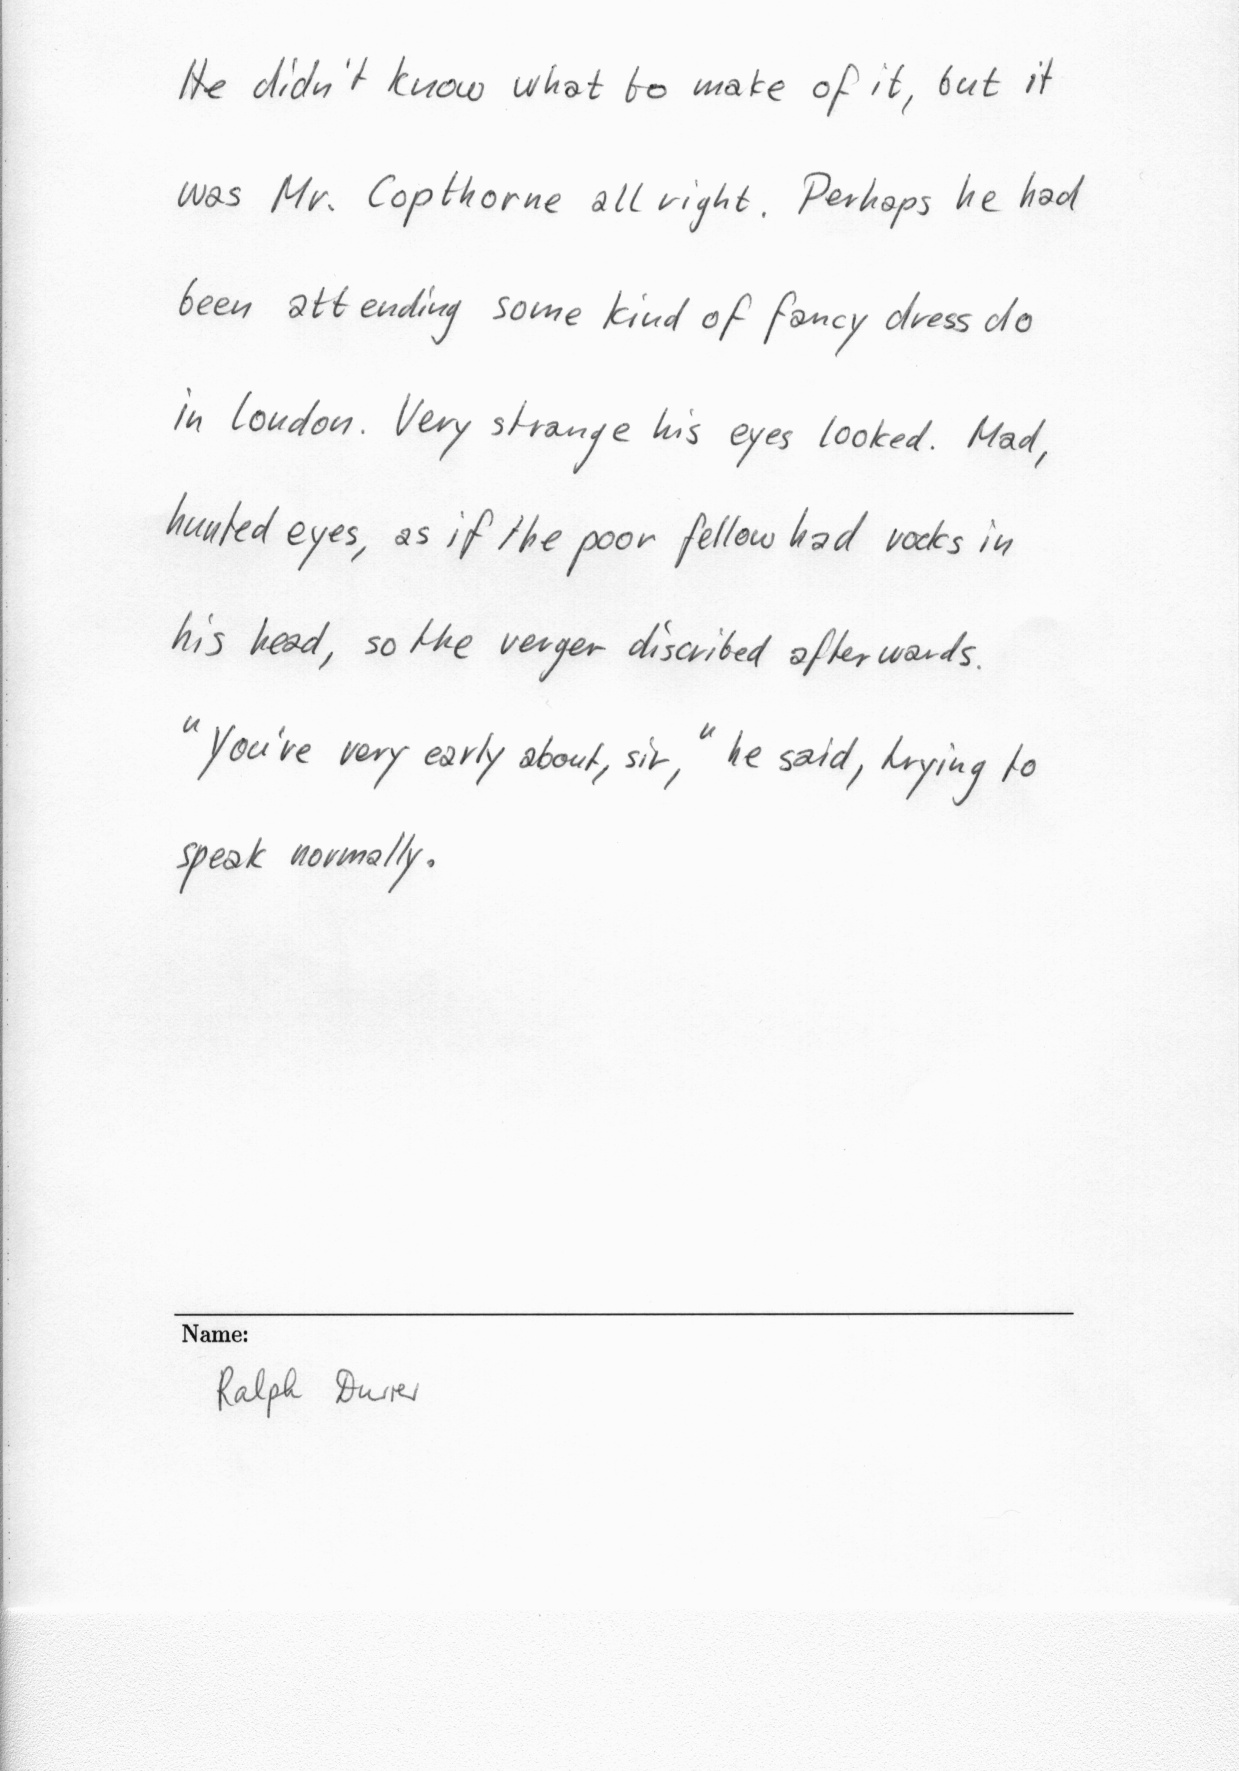 He didn't know what to make of it, but it
was Mr. Copthorne all right. Perhaps he had
been attending some kind of fancy dress do
in London. Very strange his eyes looked. Mad,
hunted eyes, as if the poor fellow had rocks in
his head, so the verger discribed afterwards.
"You're very early about, sir," he said, trying to
speak normally.
Name:
Ralph